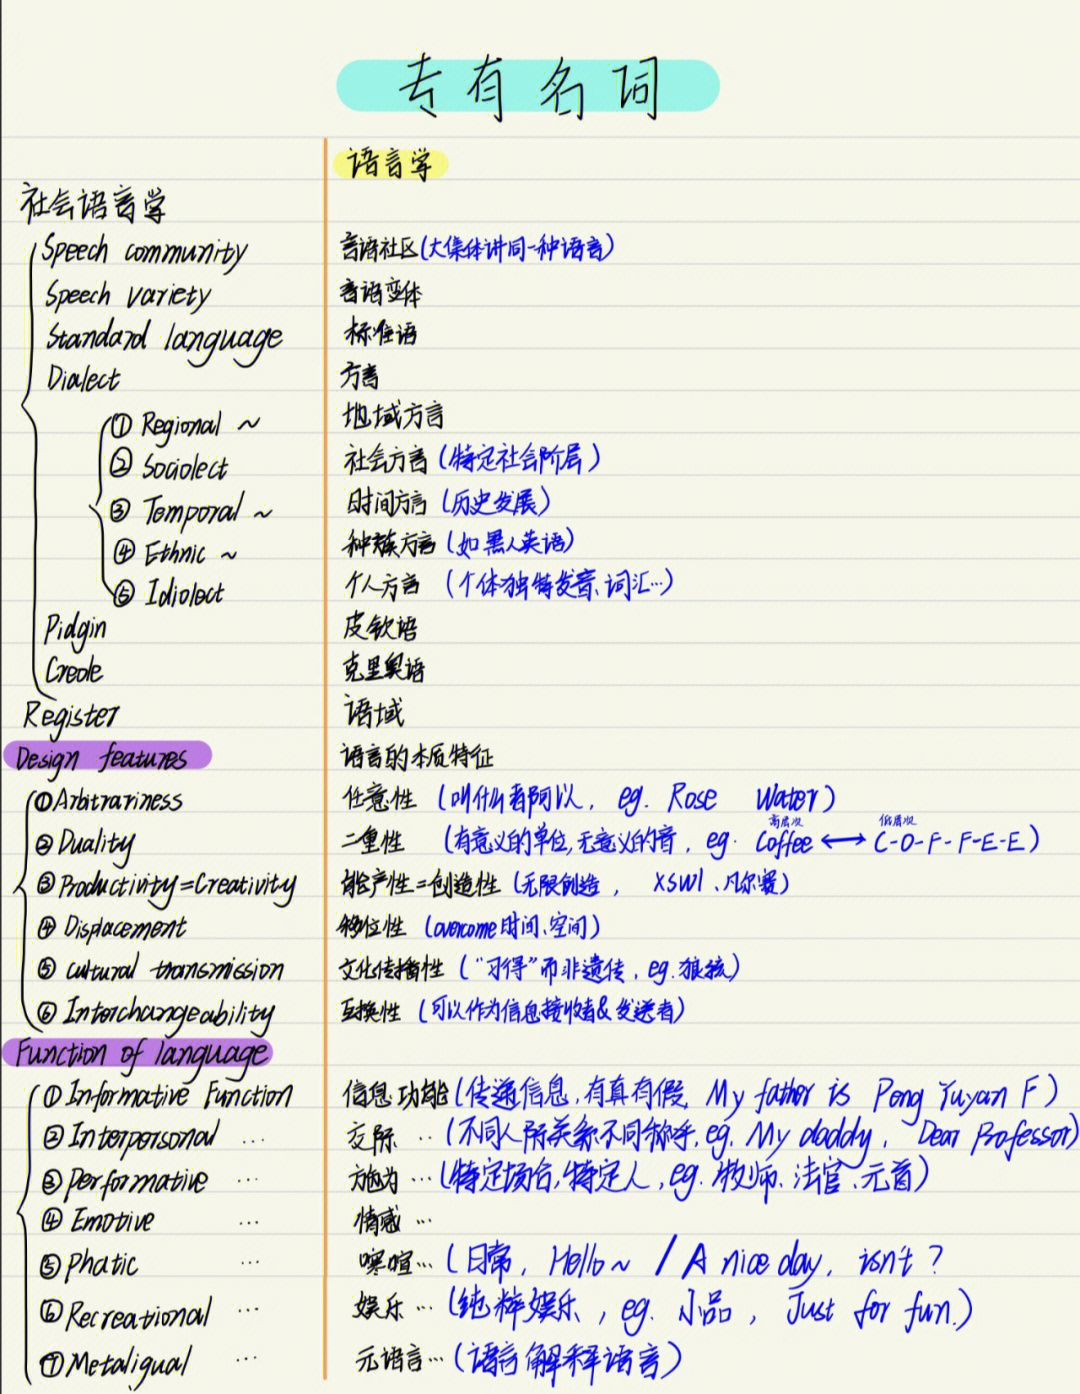 专有名词
语言学
社会语言学
Speech community 言语社区(大集体讲同一种语言)
Speech variety 言语变体
Standard language 标准语
Dialect 方言
① Regional ~ 地域方言
② Sociolect 社会方言(特定社会阶层)
③ Temporal ~ 时间方言(历史发展)
④ Ethnic ~ 种族方言(如黑人英语)
⑤ Idiolect 个人方言(个体独特发音、词汇…)
Pidgin 皮钦语
Creole 克里奥语
Register 语域
Design features 语言的本质特征
①Arbitrariness 任意性(叫什么都可以, eg. Rose Water)
高层次 低层次
②Duality 二重性(有意义的单位,无意义的音, eg. Coffee ⟷ C-O-F-F-E-E)
③Productivity=Creativity 能产性=创造性(无限创造, XSWL、凡尔赛)
④ Displacement 移位性(overcome时间、空间)
⑤ cultural transmission 文化传播性("习得"而非遗传, eg.狼孩)
⑥ Interchangeability 互换性(可以作为信息接收者&发送者)
Function of language
① Informative Function 信息功能(传递信息,有真有假, My father is Peng Yuyan F)
② Interpersonal … 交际…(不同人际关系不同称呼, eg. My daddy, Dear Professor)
③ Performative … 施为…(特定场合,特定人, eg.牧师、法官、元首)
④ Emotive … 情感…
⑤ Phatic … 寒暄…(日常, Hello~ / A nice day, isn't?
⑥ Recreational … 娱乐…(纯粹娱乐, eg. 小品, Just for fun.)
⑦ Metaligual … 元语言…(语言解释语言)